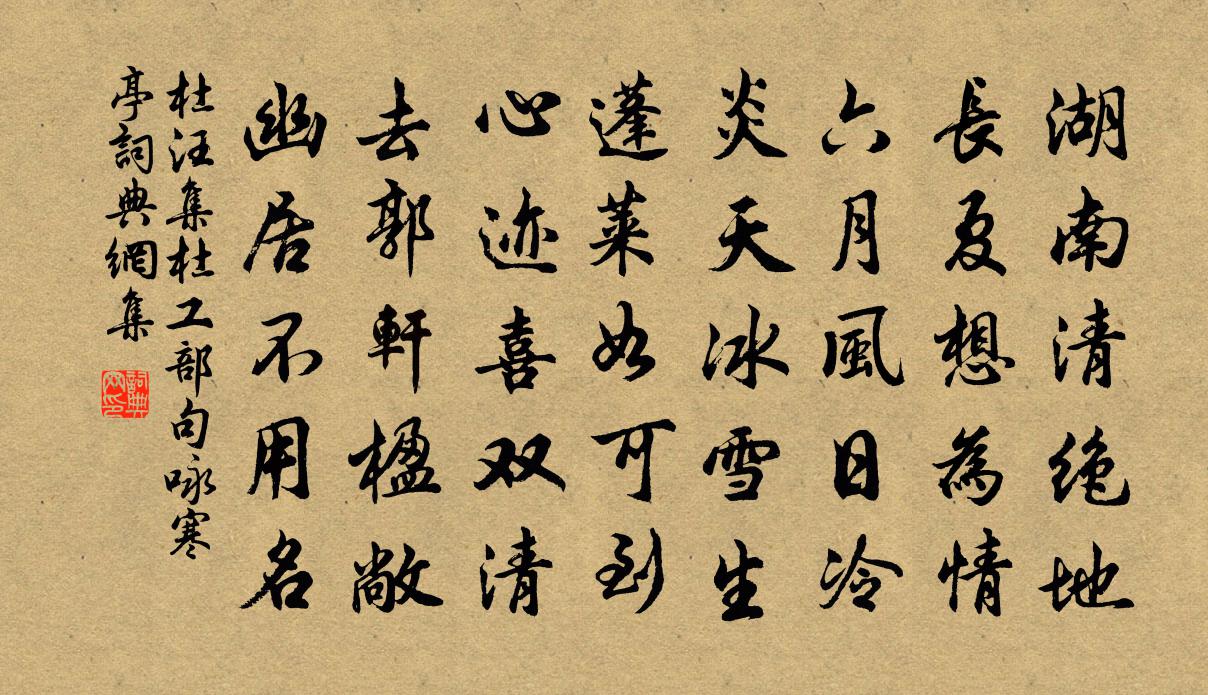 湖南清絶地
長夏想為情
六月風日冷
炎天冰雪生
蓬萊如可到
心迹喜双清
去郭軒楹敞
幽居不用名
杜汪集杜工部句咏寒
亭詞典網集
詞典
网印